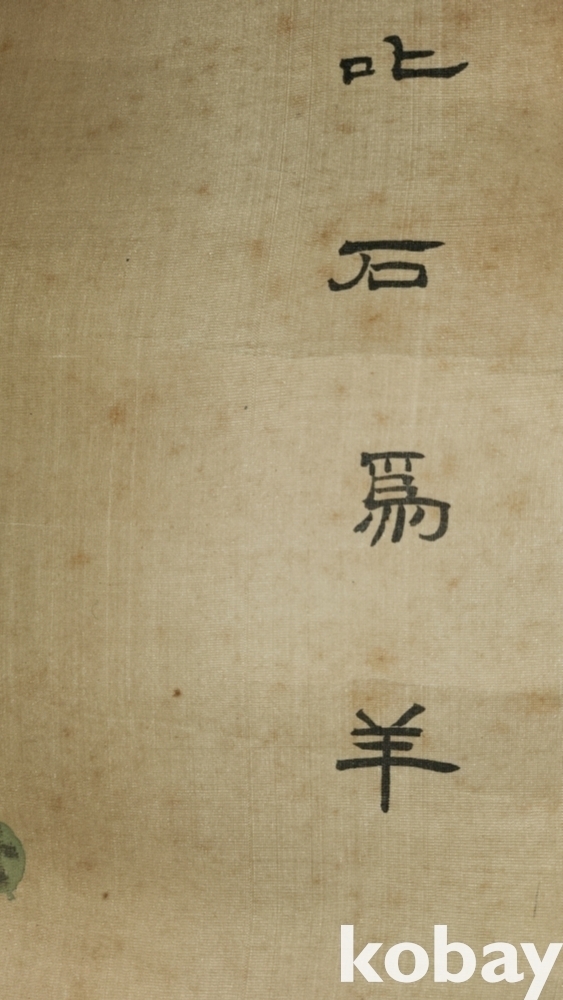 叱石爲羊
kobay